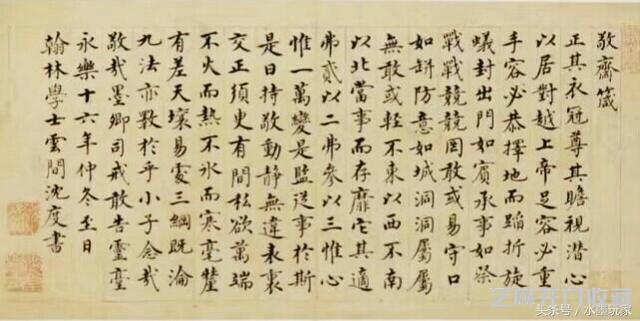 敬齋箴
正其衣冠尊其瞻視潛心
以居對越上帝足容必重
手容必恭擇地而蹈折旋
蟻封出門如賓承事如祭
戰戰兢兢罔敢或易守口
如缾防意如城洞洞屬屬
無敢或輕不東以西不南
以北當事而存靡它其適
弗貳以二弗參以三惟心
惟一萬變是監從事於斯
是曰持敬動靜無違表裏
交正須臾有間私欲萬端
不火而熱不冰而寒毫釐
有差天壤易處三綱既淪
九法亦斁於乎小子念哉
敬哉墨卿司戒敢告靈臺
永樂十六年仲冬至日
翰林學士雲間沈度書
芝麻开门收藏
头条号/水墨玩家